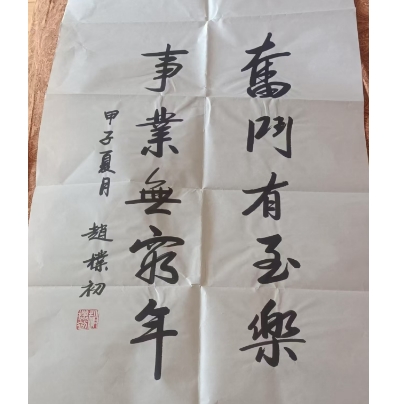 奮鬥有至樂
事業無窮年
甲子夏月
趙樸初